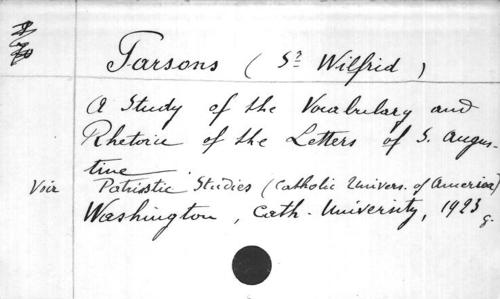 Parsons (Sr Wilfrid)
A Study of the Vocabulary and
Rhetoric of the Letters of S. Augus-
tine.
Voir Patristic Studies (Catholic Univers. of America)
Washington, Cath. University, 1923